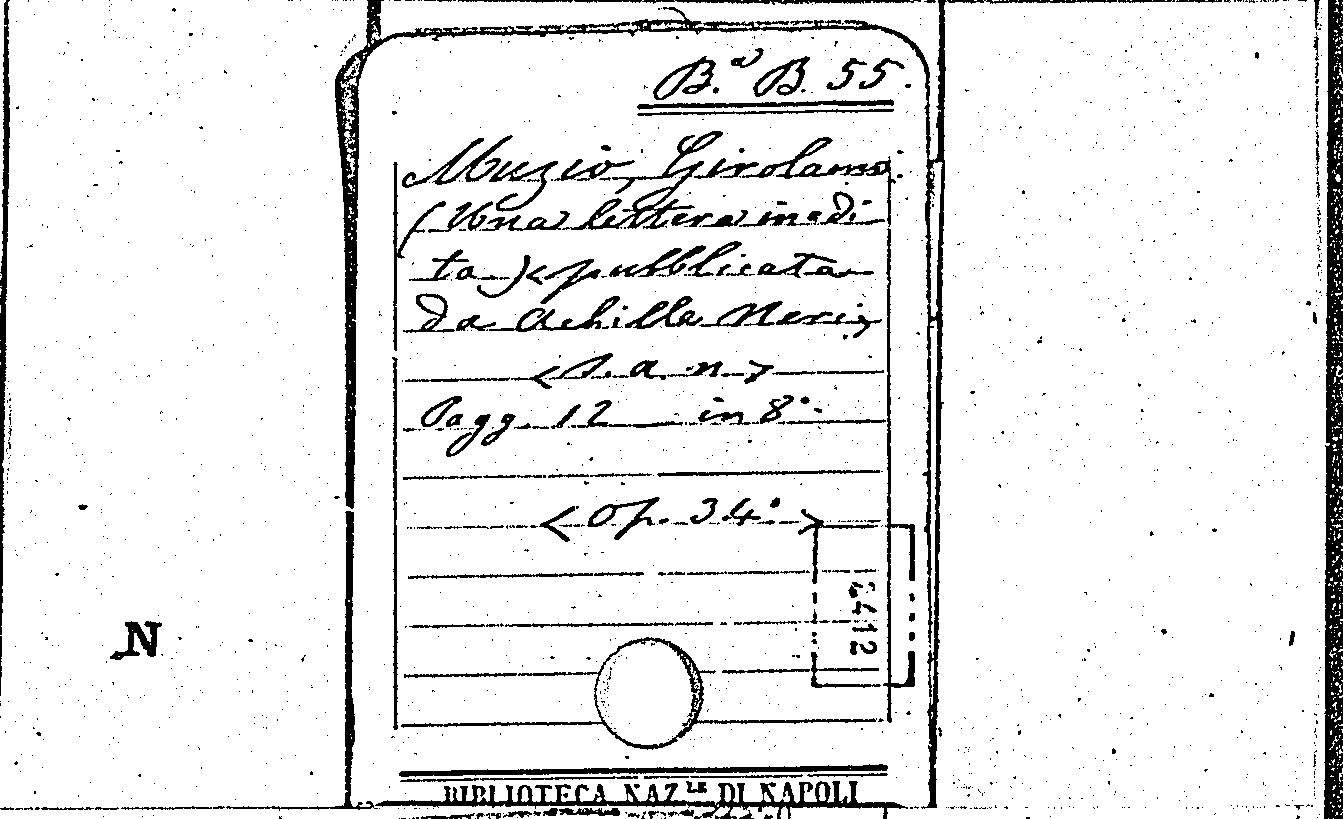 B.ª B. 55.
Muzio, Girolamo.
(Una lettera inedi
ta) <pubblicata
da Achille Neri,
<s. a. n.>
Pagg. 12 in 8°.
<Op. 34°>
4412
N
BIBLIOTECA NAZ.LE DI NAPOLI